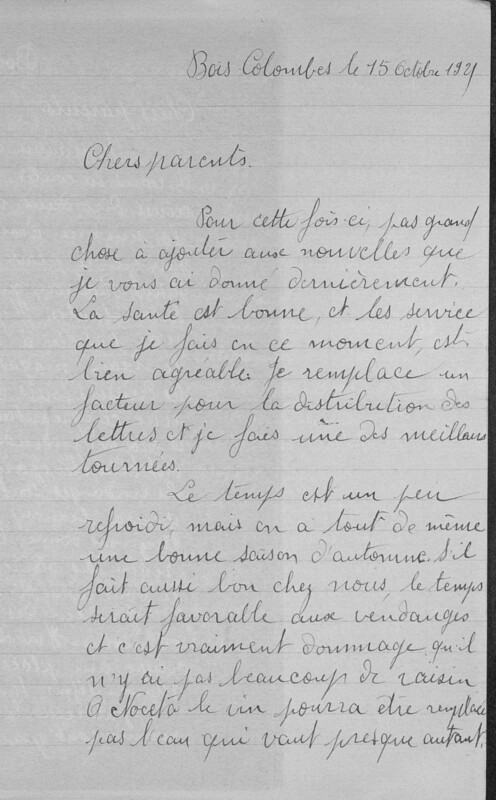 Bois Colombes le 15 Octobre 1921
Chers parents.
Pour cette fois-ci, pas grand
chose à ajouter aux nouvelles que
je vous ai donné dernièrement.
La santé est bonne, et les service
que je fais en ce moment, est
bien agréable. Je remplace un
facteur pour la distribution des
lettres et je fais une des meilleurs
tournées.
Le temps est un peu
refroidi, mais on a tout de même
une bonne saison d'automne. S'il
fait aussi bon chez nous, le temps
serait favorable aux vendanges
et c'est vraiment dommage qu'il
n'y ai pas beaucoup de raisin
A Noceta le vin pourra être remplacé
pas l'eau qui vaut presque autant.